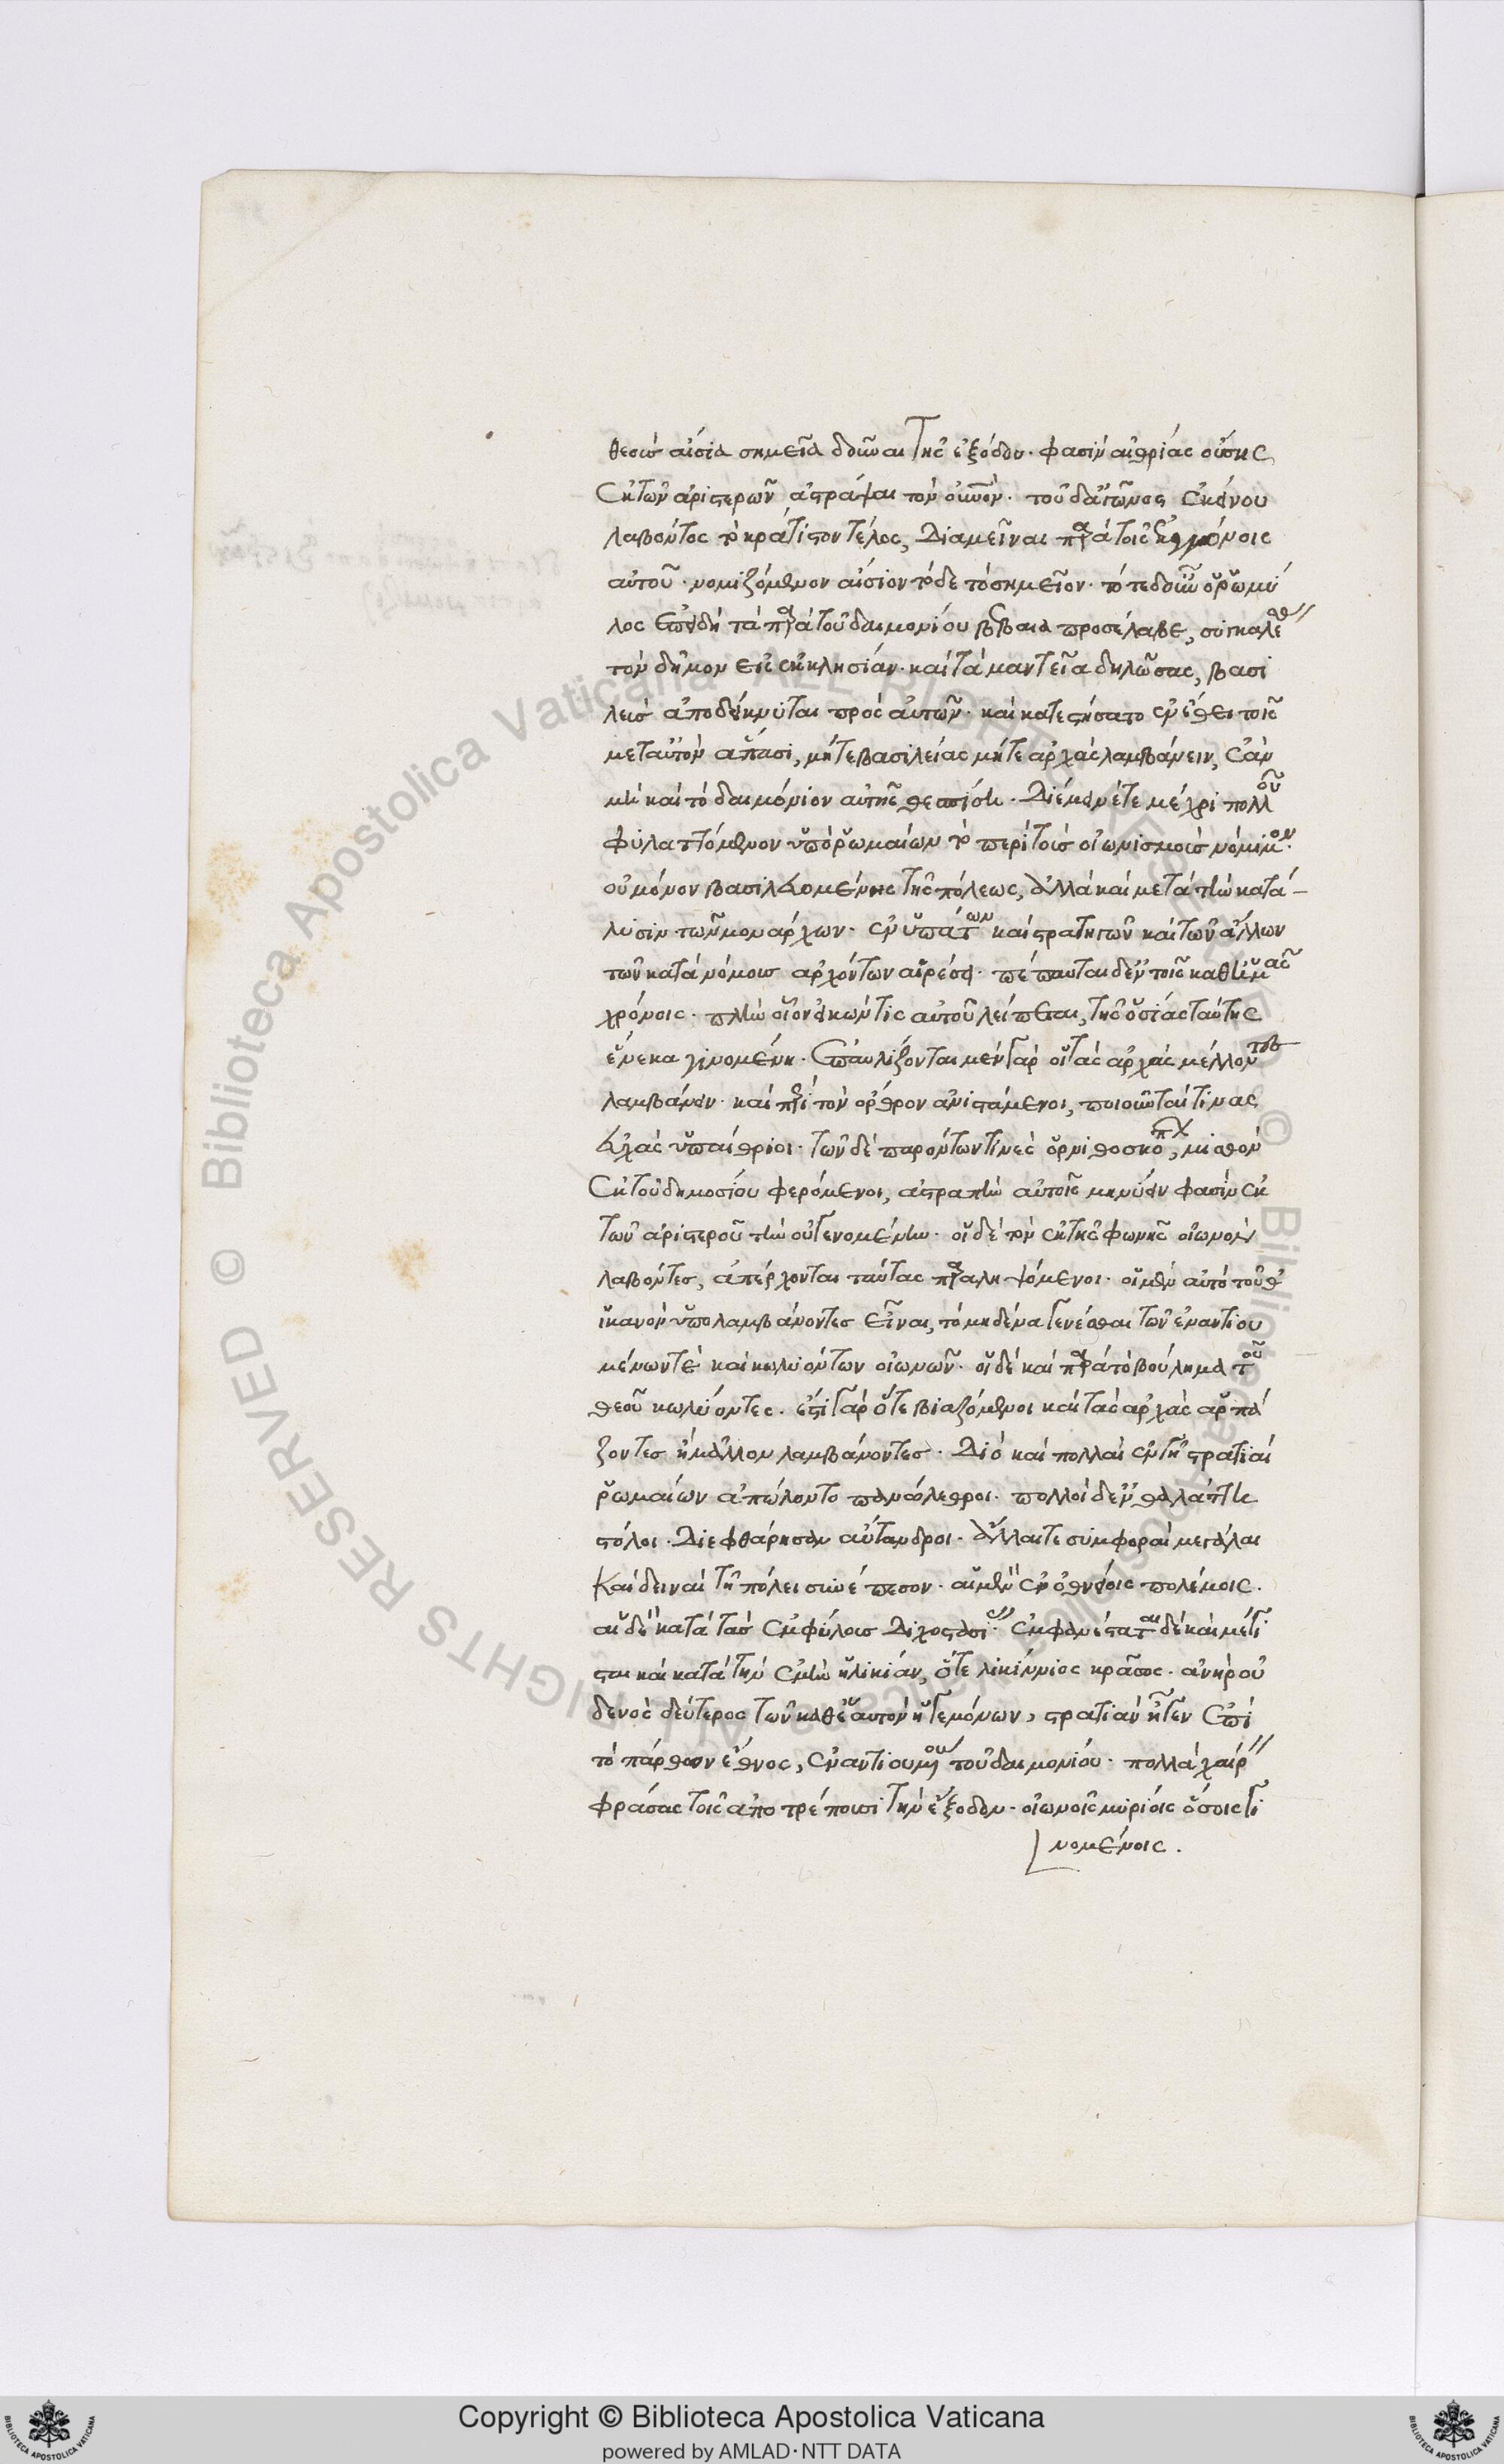 θεσιν αἰσία σημεῖα δοῦναι τῆς ἐξόδου. φασὶν αἰθρίας οὔσης
ἐκ τῶν ἀριστερῶν ἀστράψαι τὸν οἰωνόν. τοῦ δαίμονος ἐκείνου
λαβόντος τὸ κράτιστον τέλος, διαμεῖναι παρὰ τοῖς ἐγγόνοις
αὐτοῦ. νομιζόμενον αἴσιον τόδε τὸ σημεῖον. τότε δ' οὖν ὁ ῥωμύ
λος ἐπειδὴ τὰ παρὰ τοῦ δαιμονίου βέβαια προσέλαβε, συγκαλέσας
τὸν δῆμον εἰς ἐκκλησίαν. καὶ τὰ μαντεῖα δηλώσας, βασι
λεὺς ἀποδείκνυται πρὸς αὐτῶν. καὶ κατεστήσατο ἐν ἔθει τοῖς
μετ' αὐτὸν ἅπασι, μήτε βασιλείας μήτε ἀρχὰς λαμβάνειν, ἐὰν
μὴ καὶ τὸ δαιμόνιον αὐτῆς θεσπίσῃ. Διέμεινέ τε μέχρι πολλοῦ
φυλαττόμενον ὑπὸ ῥωμαίων τὸ περὶ τοὺς οἰωνισμοὺς νόμιμον.
οὐ μόνον βασιλευομένης τῆς πόλεως, ἀλλὰ καὶ μετὰ τὴν κατά-
λυσιν τῶν μονάρχων. ἐν ὑπάτων καὶ στρατηγῶν καὶ τῶν ἄλλων
τῶν κατὰ νόμους ἀρχόντων αἱρέσει. πέπαυται δ' ἐν τοῖς καθ' ἡμᾶς
χρόνοις. πλὴν οἷον εἰκών τις αὐτοῦ λείπεται, τῆς ὁσίας ταύτης
ἕνεκα γινομένη. ἐπαυλίζονται μὲν γὰρ οἱ τὰς ἀρχὰς μέλλοντες
λαμβάνειν. καὶ περὶ τὸν ὄρθρον ἀνιστάμενοι, ποιοῦνταί τινας
εὐχὰς ὑπαίθριοι. τῶν δὲ παρόντων τινὲς ὀρνιθοσκόποι, μισθὸν
ἐκ τοῦ δημοσίου φερόμενοι, ἀστραπὴν αὐτοῖς μηνύειν φασὶν ἐκ
τῶν ἀριστερῶν τὴν οὐ γενομένην. οἱ δὲ τὸν ἐκ τῆς φωνῆς οἰωνὸν
λαβόντες, ἀπέρχονται ταύτας παραληψόμενοι. οἱ μὲν αὐτὸ τοῦθ'
ἱκανὸν ὑπολαμβάνοντες εἶναι, τὸ μηδένα γενέσθαι τῶν ἐναντιου
μένων τε καὶ κωλυόντων οἰωνῶν. οἱ δὲ καὶ παρὰ τὸ βούλημα τοῦ
θεοῦ κωλύοντες. ἔστι γὰρ ὅτε βιαζόμενοι καὶ τὰς ἀρχὰς ἁρπά
ζοντες ἢ μᾶλλον λαμβάνοντες. Διὸ καὶ πολλαὶ ἐν γῇ στρατιαὶ
ῥωμαίων ἀπώλοντο πανώλεθροι. πολλοὶ δ' ἐν θαλάττῃ
στόλοι. Διεφθάρησαν αὔτανδροι. ἄλλαι τε συμφοραὶ μεγάλαι
Καὶ δειναὶ τῇ πόλει συνέπεσον. αἱ μὲν ἐν ὀθνείοις πολέμοις.
αἱ δὲ κατὰ τὰς ἐμφύλους διχοστασίας. ἐμφανέσταται δὲ καὶ μεγί
σται καὶ κατὰ τὴν ἐμὴν ἡλικίαν, ὅτε λικίννιος κράσσος. ἀνὴρ οὐ
δενὸς δεύτερος τῶν καθ' ἑαυτὸν ἡγεμόνων, στρατιὰν ἦγεν ἐπὶ
τὸ πάρθων ἔθνος, ἐναντιουμένου τοῦ δαιμονίου. πολλὰ χαίρειν
φράσας τοῖς ἀποτρέπουσι τὴν ἔξοδον. οἰωνοῖς μυρίοις ὅσοις γι
νομένοις.